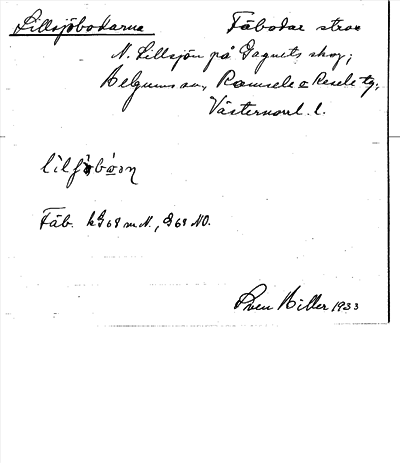 Lillsjöbodarna Fäbodar strax
N. Lillsjön på Dagnets skog;
Helgums sn, Ramsele o Resele tg,
Västernorrl. l.
Fäb. 68 m N., 68 NO.
Sven Hiller 1933